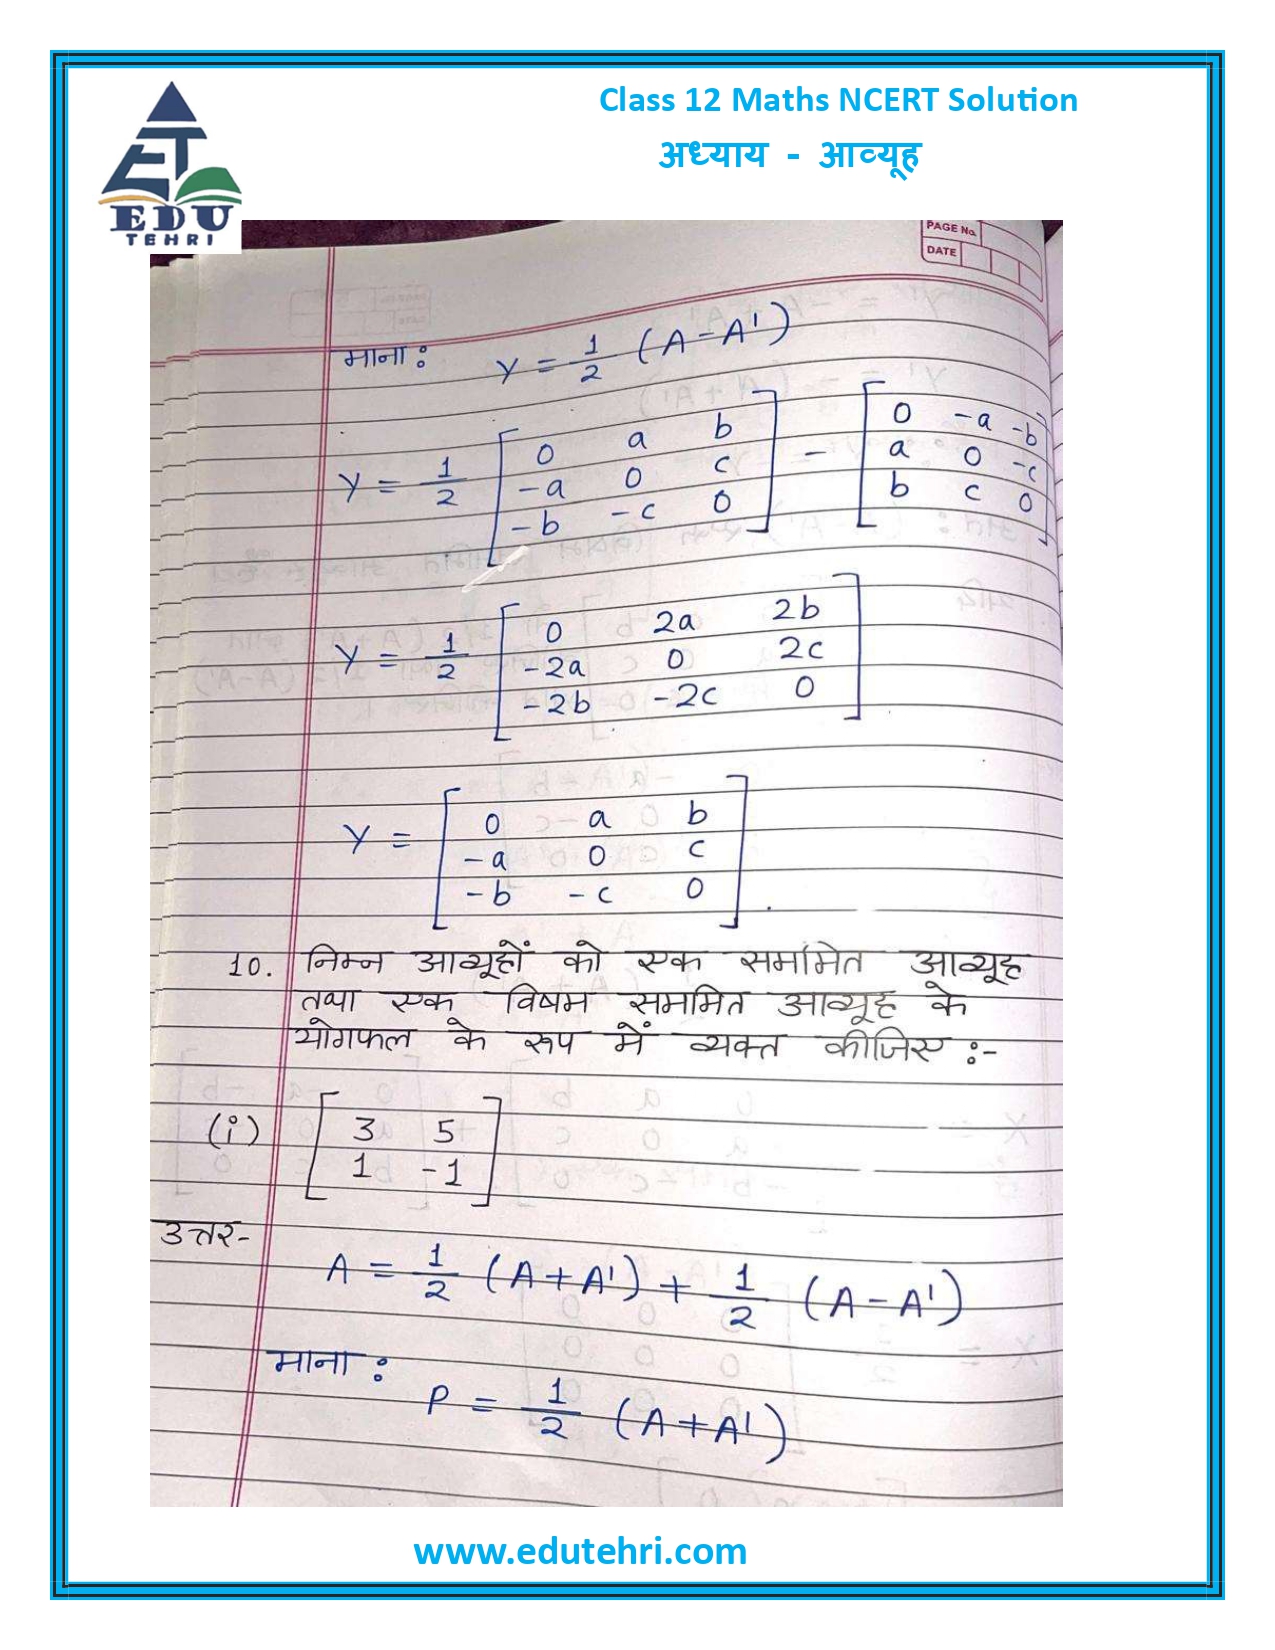 Class 12 Maths NCERT Solution
अध्याय - आव्यूह
EDU
TEHRI
PAGE No.
DATE
माना : Y = 1/2 (A - A')
Y = 1/2 [0 a b; -a 0 c; -b -c 0] - [0 -a -b; a 0 -c; b c 0]
Y = 1/2 [0 2a 2b; -2a 0 2c; -2b -2c 0]
Y = [0 a b; -a 0 c; -b -c 0].
10. निम्न आव्यूहों को एक सममित आव्यूह
तथा एक विषम सममित आव्यूह के
योगफल के रूप में व्यक्त कीजिए :-
(i) [3 5; 1 -1]
उत्तर-
A = 1/2 (A + A') + 1/2 (A - A')
माना :
P = 1/2 (A + A')
www.edutehri.com